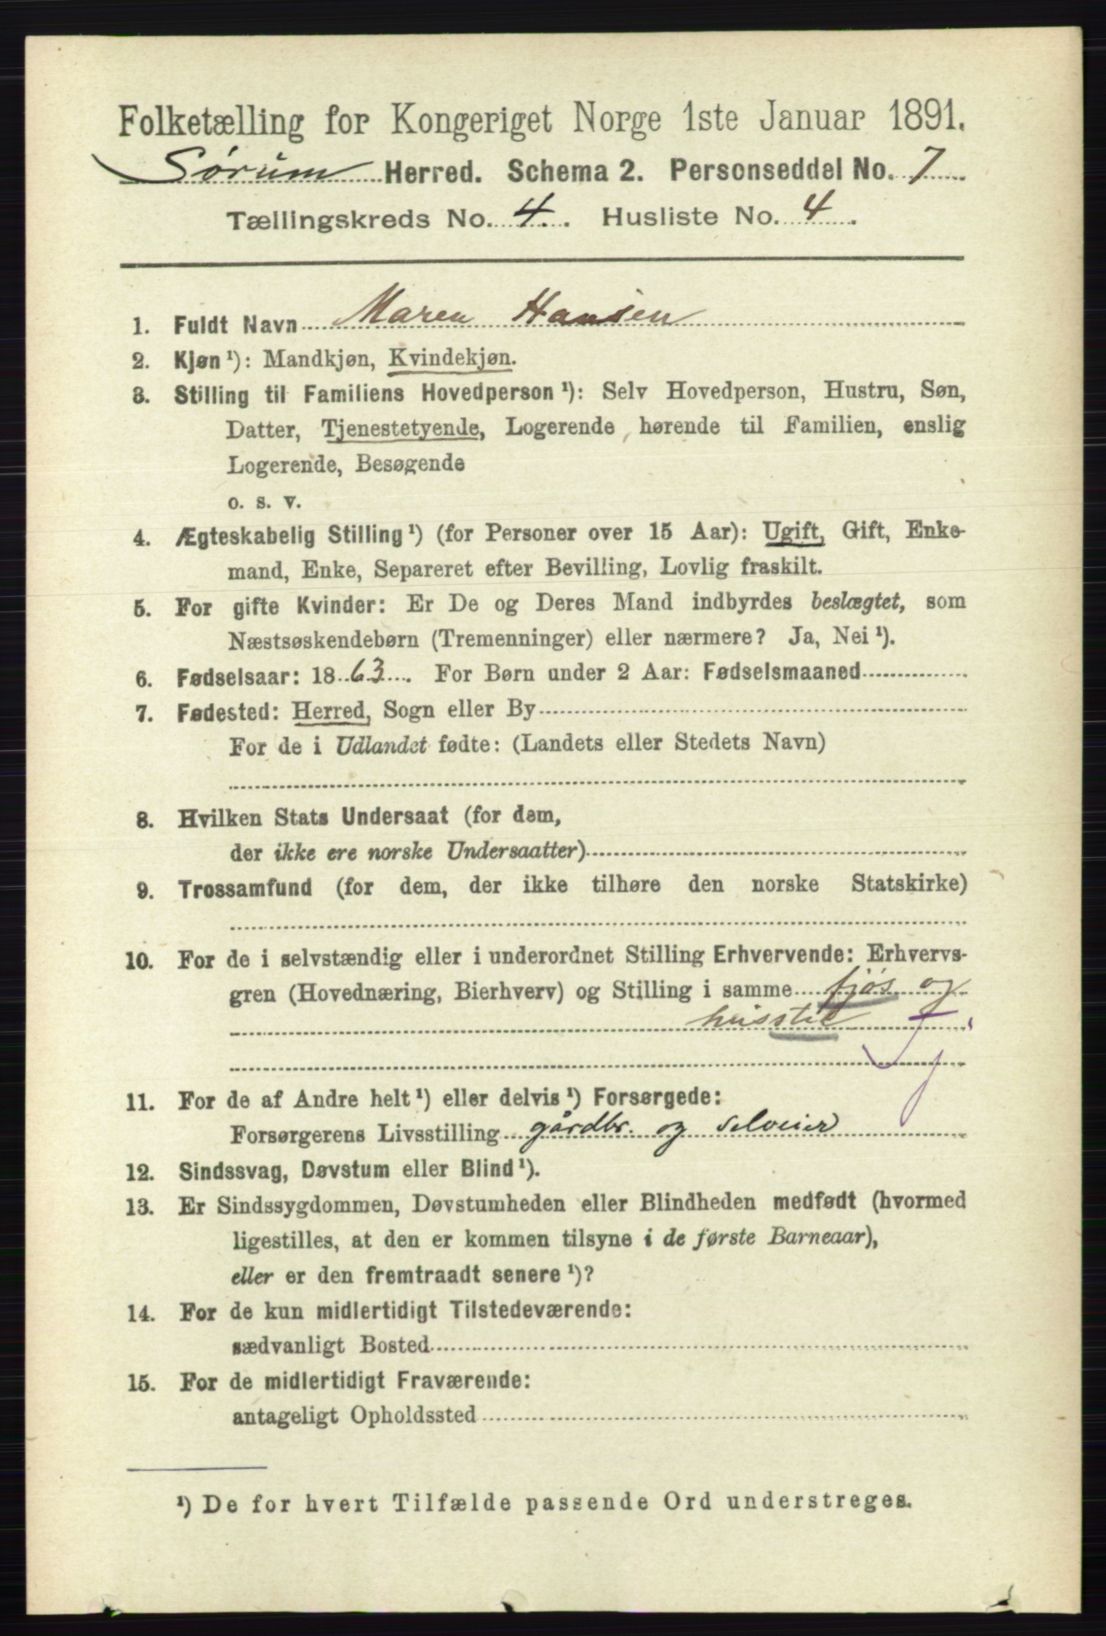 Folketælling for Kongeriget Norge 1ste Januar 1891.
Sørum Herred. Schema 2. Personseddel No. 7
Tællingskreds No. 4. Husliste No. 4.
1. Fuldt Navn Maren Hansen
2. Kjøn ¹): Mandkjøn, Kvindekjøn.
3. Stilling til Familiens Hovedperson ¹): Selv Hovedperson, Hustru, Søn,
Datter, Tjenestetyende, Logerende hørende til Familien, enslig
Logerende, Besøgende
o. s. v.
4. Ægteskabelig Stilling ¹) (for Personer over 15 Aar): Ugift, Gift, Enke-
mand, Enke, Separeret efter Bevilling, Lovlig fraskilt.
5. For gifte Kvinder: Er De og Deres Mand indbyrdes beslægtet, som
Næstsøskendebørn (Tremenninger) eller nærmere? Ja, Nei ¹).
6. Fødselsaar: 1863. For Børn under 2 Aar: Fødselsmaaned
7. Fødested: Herred, Sogn eller By
For de i Udlandet fødte: (Landets eller Stedets Navn)
8. Hvilken Stats Undersaat (for dem,
der ikke ere norske Undersaatter)
9. Trossamfund (for dem, der ikke tilhøre den norske Statskirke)
10. For de i selvstændig eller i underordnet Stilling Erhvervende: Erhvervs-
gren (Hovednæring, Bierhverv) og Stilling i samme fjøs og
husstel
11. For de af Andre helt ¹) eller delvis ¹) Forsørgede:
Forsørgerens Livsstilling gårdbr. og selveier
12. Sindssvag, Døvstum eller Blind ¹).
13. Er Sindssygdommen, Døvstumheden eller Blindheden medfødt (hvormed
ligestilles, at den er kommen tilsyne i de første Barneaar),
eller er den fremtraadt senere ¹)?
14. For de kun midlertidigt Tilstedeværende:
sædvanligt Bosted
15. For de midlertidigt Fraværende:
antageligt Opholdssted
¹) De for hvert Tilfælde passende Ord understreges.